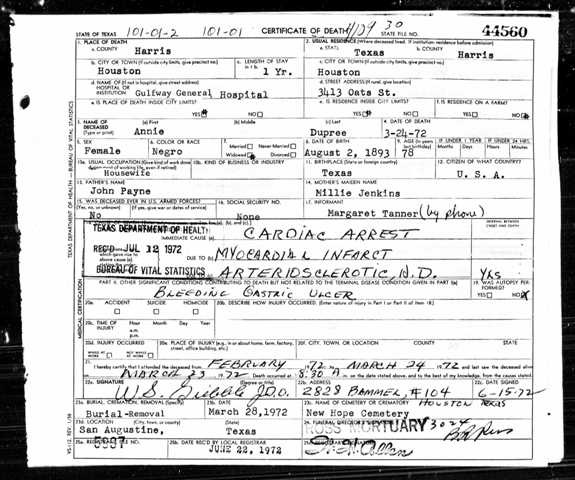 STATE OF TEXAS 101-01-2 101-01 CERTIFICATE OF DEATH 30 STATE FILE NO. 44560
1. PLACE OF DEATH 2. USUAL RESIDENCE (Where deceased lived. If institution: residence before admission)
a. COUNTY Harris a. STATE Texas b. COUNTY Harris
b. CITY OR TOWN (If outside city limits, give precinct no.) Houston c. LENGTH OF STAY 1 Yr. c. CITY OR TOWN (If outside city limits, give precinct no.) Houston
d. NAME OF (If not in hospital, give street address) HOSPITAL OR INSTITUTION Gulfway General Hospital d. STREET ADDRESS (If rural, give location) 3413 Oats St.
e. IS PLACE OF DEATH INSIDE CITY LIMITS? YES NO e. IS RESIDENCE INSIDE CITY LIMITS? YES NO f. IS RESIDENCE ON A FARM? YES NO
3. NAME OF DECEASED (Type or print) (a) First Annie (b) Middle (c) Last Dupree 4. DATE OF DEATH 3-24-72
5. SEX Female 6. COLOR OR RACE Negro 7. Married Never Married Widowed Divorced 8. DATE OF BIRTH August 2, 1893 9. AGE (In years last birthday) 78 IF UNDER 1 YEAR Months Days IF UNDER 24 HRS. Hours Min.
10a. USUAL OCCUPATION (Give kind of work done during most of working life, even if retired) Housewife 10b. KIND OF BUSINESS OR INDUSTRY 11. BIRTHPLACE (State or foreign country) Texas 12. CITIZEN OF WHAT COUNTRY? U. S. A.
13. FATHER'S NAME John Payne 14. MOTHER'S MAIDEN NAME Millie Jenkins
15. WAS DECEASED EVER IN U.S. ARMED FORCES? (Yes, no, or unknown) (If yes, give war or dates of service) No 16. SOCIAL SECURITY NO. None 17. INFORMANT Margaret Tanner (by phone)
TEXAS DEPARTMENT OF HEALTH IMMEDIATE CAUSE (a) CARDIAC ARREST INTERVAL BETWEEN ONSET AND DEATH
REC'D JUL 12 1972 DUE TO (b) MYOCARDIAL INFARCT
BUREAU OF VITAL STATISTICS DUE TO (c) ARTERIOSCLEROTIC H.D. YRS
PART II. OTHER SIGNIFICANT CONDITIONS CONTRIBUTING TO DEATH BUT NOT RELATED TO THE TERMINAL DISEASE CONDITION GIVEN IN PART I(a) 19. WAS AUTOPSY PERFORMED?
BLEEDING GASTRIC ULCER YES NO
20a. ACCIDENT SUICIDE HOMICIDE 20b. DESCRIBE HOW INJURY OCCURRED. (Enter nature of injury in Part I or Part II of item 18)
20c. TIME OF INJURY Hour Month Day Year a.m. p.m.
20d. INJURY OCCURRED WHILE AT WORK NOT WHILE AT WORK 20e. PLACE OF INJURY (e.g. in or about home, farm, factory, street, office building, etc.) 20f. CITY, TOWN, OR LOCATION COUNTY STATE
21. I hereby certify that I attended the deceased from FEBRUARY 1972 to MARCH 24 1972 and last saw the deceased alive
on MARCH 23 1972 Death occurred at 8:30 A m on the date stated above, and to the best of my knowledge, from the causes stated.
22a. SIGNATURE (Degree or title) D.O. 22b. ADDRESS 2828 BAMMEL, #104 HOUSTON TEXAS 22c. DATE SIGNED 6-15-72
23a. BURIAL, CREMATION, REMOVAL (Specify) Burial-Removal 23b. DATE March 28, 1972 23c. NAME OF CEMETERY OR CREMATORY New Hope Cemetery
23d. LOCATION (City, town, or county) (State) San Augustine, Texas 24. FUNERAL DIRECTOR'S SIGNATURE ROSS MORTUARY 3024
25a. REGISTRAR'S FILE NO. 5987 25b. DATE REC'D BY LOCAL REGISTRAR JUNE 22, 1972
TEXAS DEPARTMENT OF HEALTH—BUREAU OF VITAL STATISTICS
MEDICAL CERTIFICATION